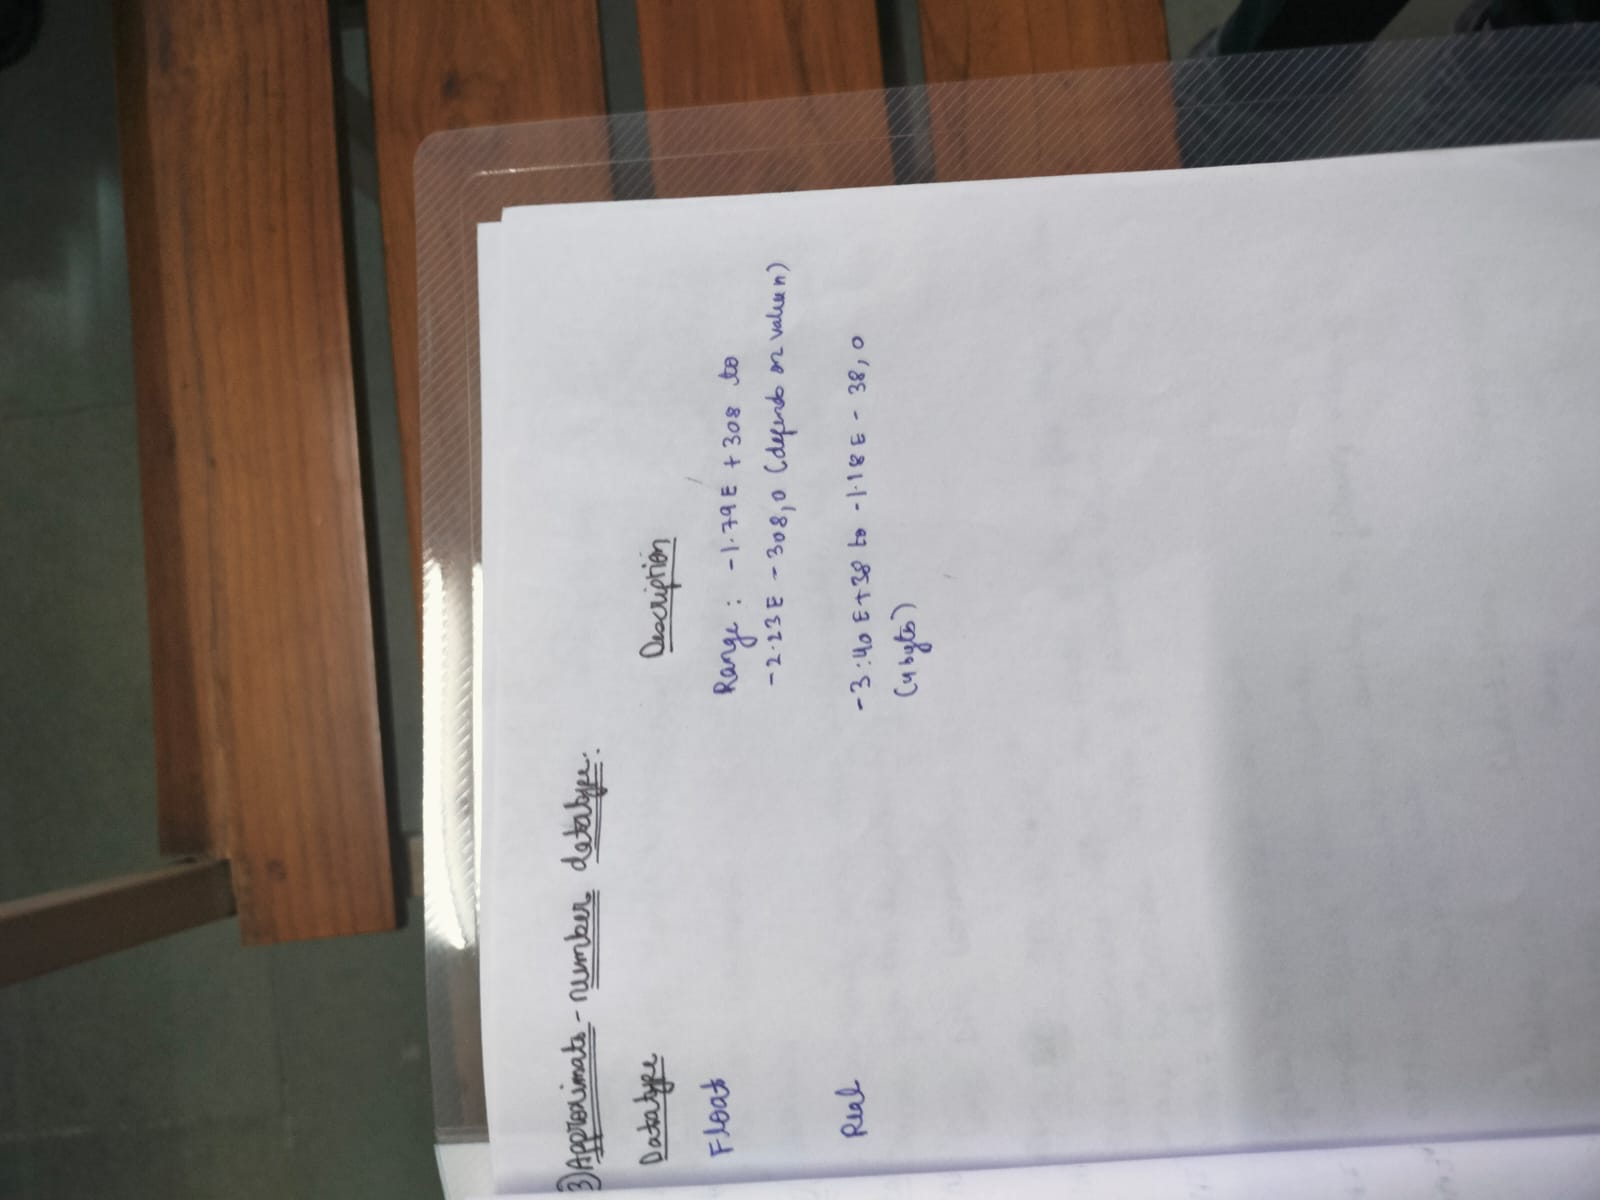 3) Approximate - number datatype.
Datatype Description
Float Range : -1.79E + 308 to
-2.23E - 308,0 (depends on value n)
Real -3:40 E+38 to -1.18E - 38, 0
(4 byts)